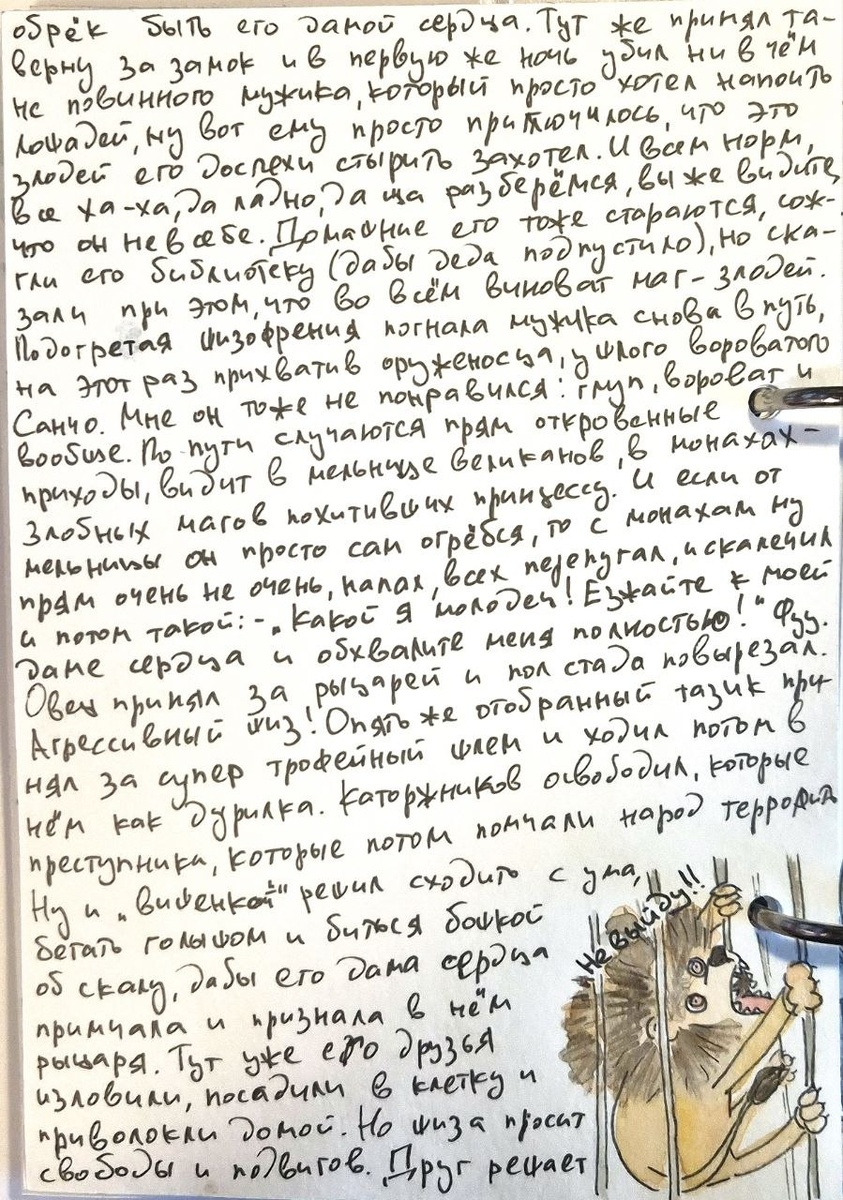 обрёк быть его дамой сердца. Тут же принял та-
верну за замок и в первую же ночь убил ни в чём
не повинного мужика, который просто хотел напоить
лошадей, ну вот ему просто приглючилось, что это
злодей его доспехи стырить захотел. И всем норм,
все ха-ха, да ладно, да ща разберёмся, вы же видите,
что он не в себе. Домашние его тоже стараются, сож-
гли его библиотеку (дабы деда подпустило), но ска-
зали при этом, что во всём виноват маг-злодей.
Подогретая шизофрения погнала мужика снова в путь,
на этот раз прихватив оруженосца, ушлого вороватого
Санчо. Мне он тоже не понравился: глуп, вороват и
вообще. По пути случаются прям откровенные
приходы, видит в мельнице великанов, в монахах-
злобных магов похитивших принцессу. И если от
мельницы он просто сам огрёбся, то с монахам ну
прям очень не очень, напал, всех перепугал, искалечил
и потом такой: - „Какой я молодец! Езжайте к моей
даме сердца и обхвалите меня полностью!" Фуу.
Овец принял за рыцарей и пол стада повырезал.
Агрессивный шиз! Опять же отобранный тазик при-
нял за супер трофейный шлем и ходил потом в
нём как дурилка. Каторжников освободил, которые
преступника, которые потом помчали народ террорить
Ну и „вишенкой" решил сходить с ума,
бегать голышом и биться башкой
об скалу, дабы его дама сердца
примчала и признала в нём
рыцаря. Тут уже его друзья
изловили, посадили в клетку и
приволокли домой. Но шиза просит
свободы и подвигов. Друг решает
Не выйду!!